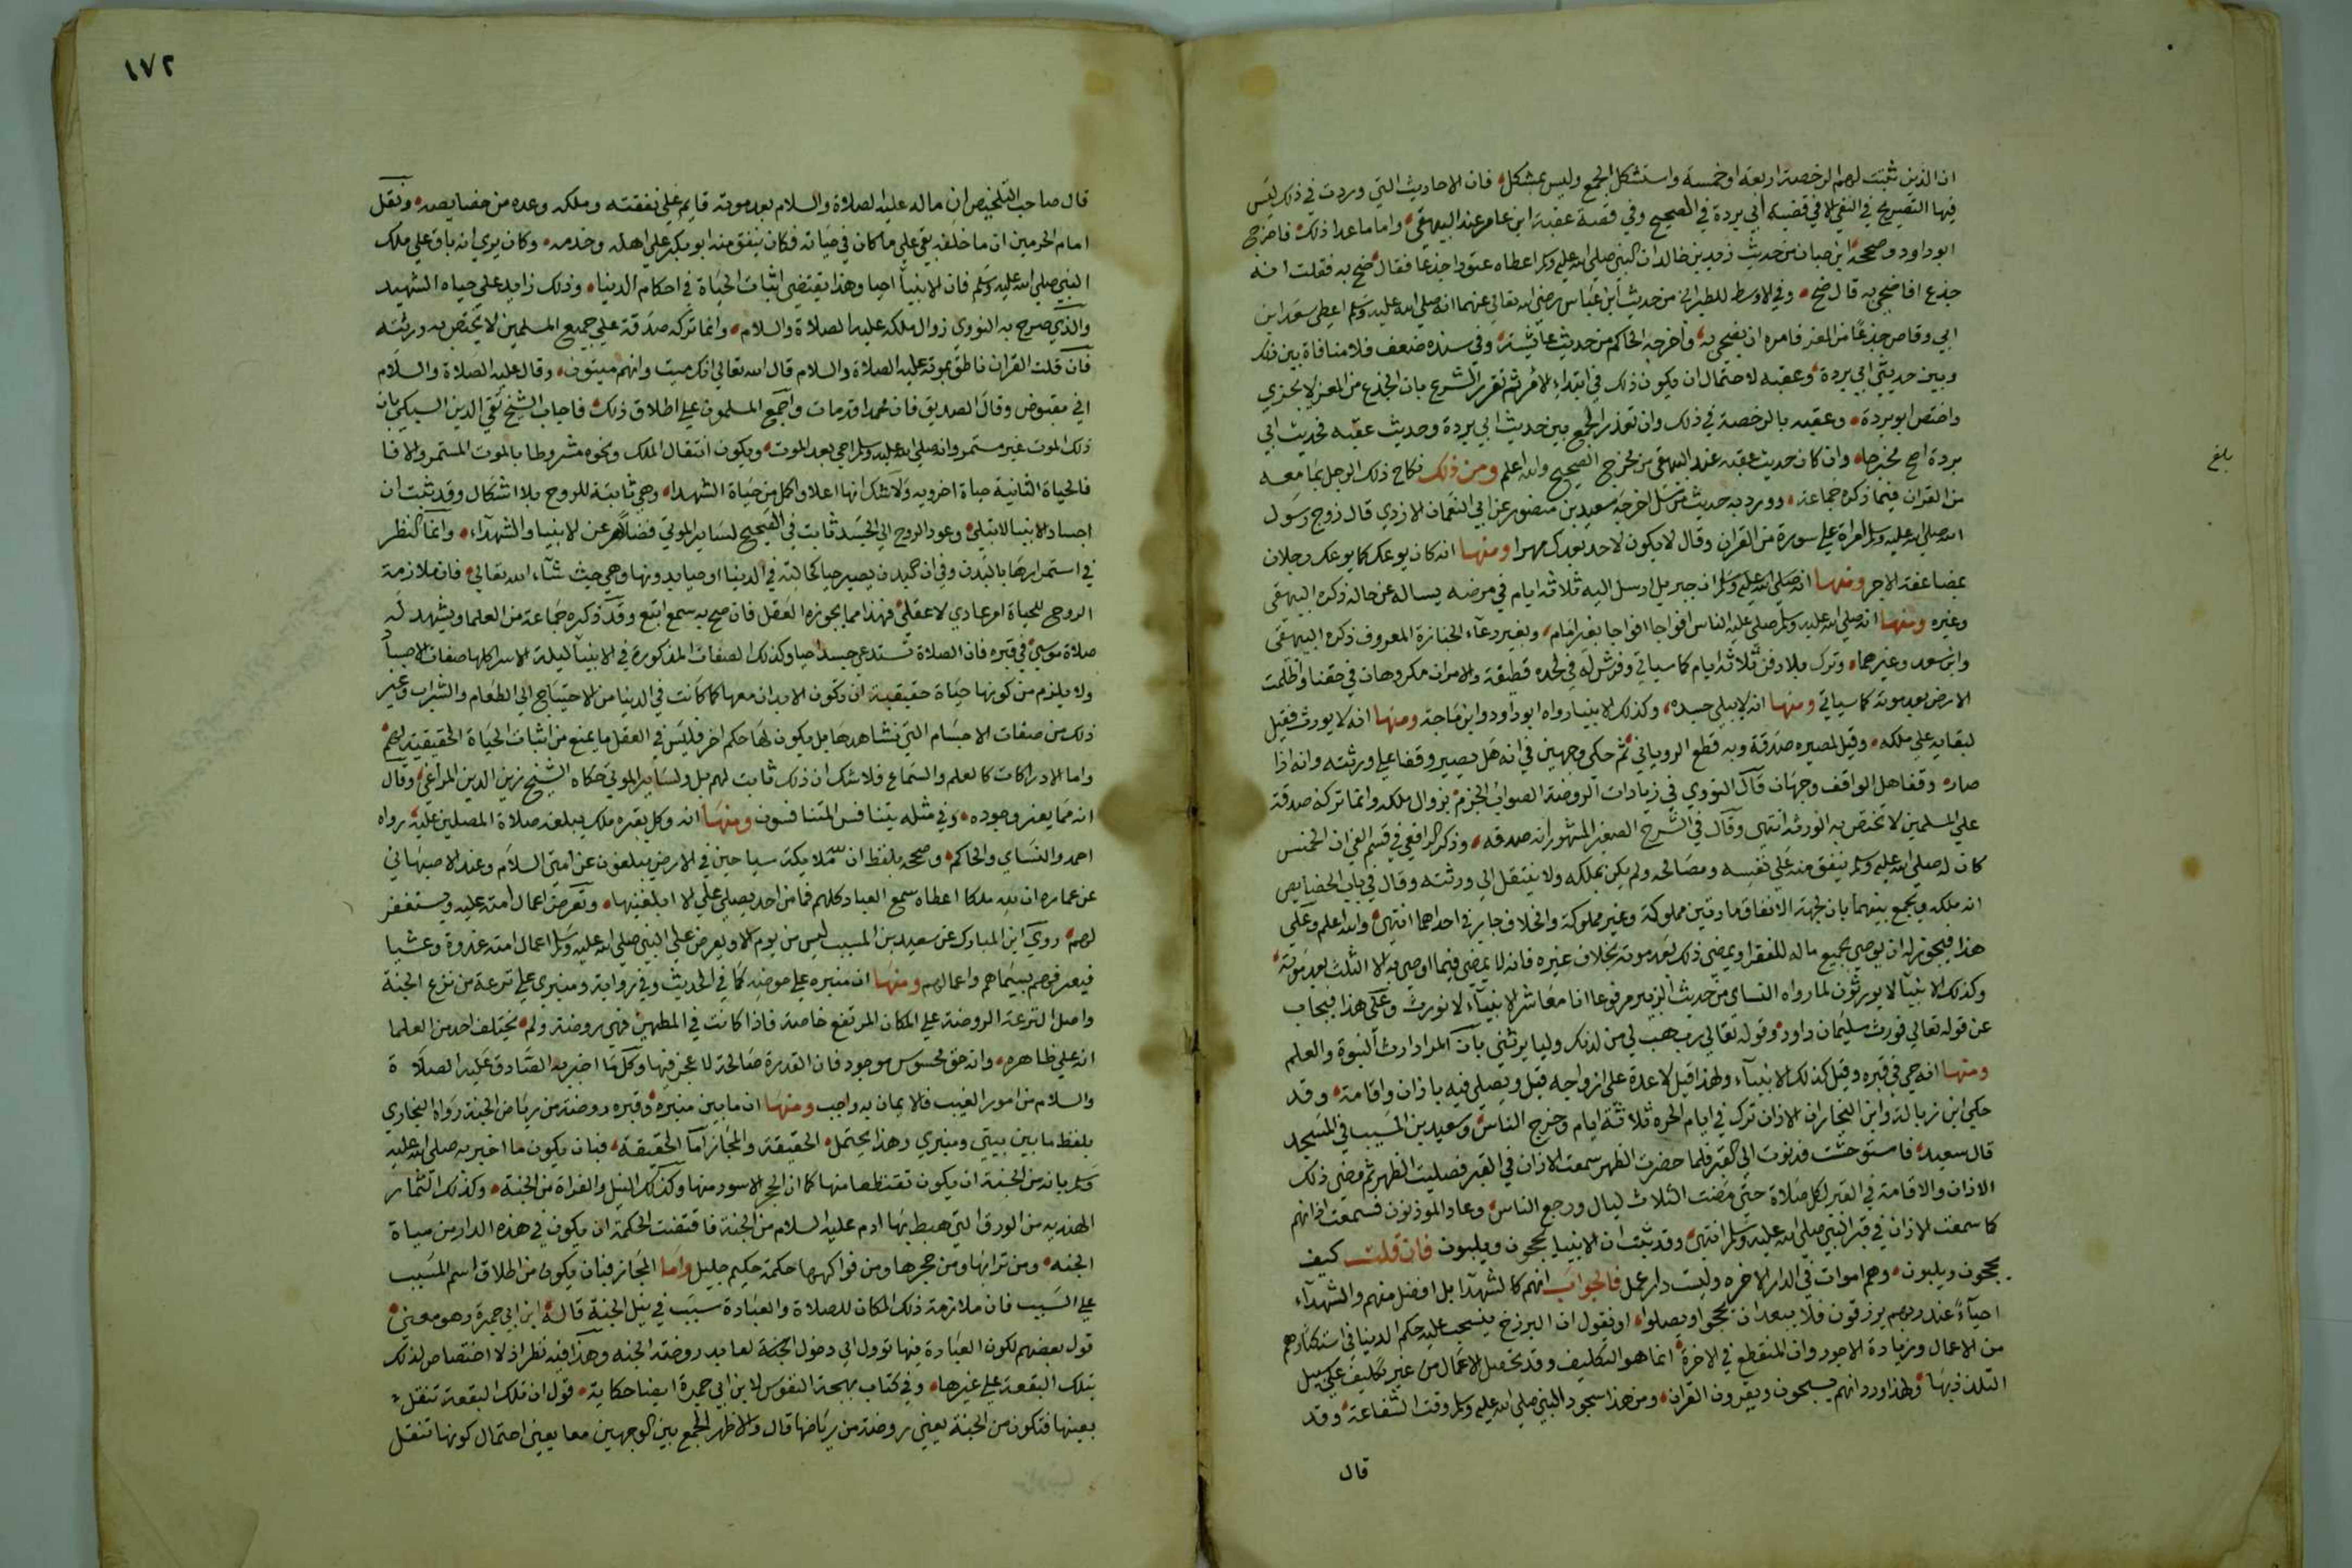 ان الذين ثبتت لهم الرخصة اربعة او خمسة واستشكل الجمع وليس بمشكل فان الاحاديث التي وردت في ذلك ليس
فيها التصريح في النفي الا في قضية ابي بردة في الصحيح وفي قصة عقبة ابن عامر عند البيهقي واما ما عدا ذلك فاخرج
ابو داود وصححه ابن حبان من حديث زيد بن خالد ان النبي صلى الله عليه وسلم اعطاه عتودا جذعا فقال ضح به فقلت انه
جذع افاضحي به قال ضح وفي الاوسط للطبراني من حديث ابن عباس رضي الله تعالى عنهما انه صلى الله عليه وسلم اعطى سعد ابن
ابي وقاص جذعا من المعز فامره ان يضحي به واخرجه الحاكم من حديث عائشة وفي سنده ضعف فلا منافاة بين ذلك
وبين حديثي ابي بردة وعقبه لاحتمال ان يكون ذلك في ابتداء الامر ثم تقرر الشرع بان الجذع من المعز لا يجزي
واختص ابو بردة وعقبه بالرخصة في ذلك وان تعذر الجمع بين حديث ابي بردة وحديث عقبه فحديث ابي
بردة اصح مخرجا وان كان حديث عقبه عند البيهقي من مخرج الصحيح والله اعلم ومن ذلك نكاح ذلك الرجل بما معه
من القران فيما ذكره جماعة وورد به حديث مرسل اخرجه سعيد بن منصور عن ابي النعمان الازدي قال زوج رسول
الله صلى الله عليه وسلم امراة على سورة من القران وقال لا يكون لاحد بعدك مهرا ومنها انه كان يوعك كما يوعك رجلان
بمضاعفة الاجر ومنها انه صلى الله عليه وسلم ان جبريل ارسل اليه ثلاثة ايام في مرضه يساله عن حاله ذكره البيهقي
وغيره ومنها انه صلى الله عليه وسلم صلى عليه الناس افواجا افواجا بغير امام وبغير دعاء الجنازة المعروف ذكره البيهقي
وابن سعد وغيرهما وترك بلا دفن ثلاثة ايام كما سياتي وفرش له في لحده قطيفة والامران مكروهان في حقنا واظلمت
الارض بعد موته كما سياتي ومنها انه لا يبلى جسده وكذلك الانبيا رواه ابو داود وابن ماجة ومنها انه لا يورث فقيل
لبقايه على ملكه وقيل لمصيره صدقة وبه قطع الروياني ثم حكى وجهين في انه هل يصير وقفا على ورثته وانه اذا
صار وقفا هل الواقف وجهان قال النووي في زيادات الروضة الصواب الجزم بزوال ملكه وانما تركه صدقة
على المسلمين لا تختص به الورثة انتهى وقال في الشرح الصغير المشهور انه صدقه وذكر الرافعي في قسم الفي ان الخمس
كان له صلى الله عليه وسلم ينفق منه على نفسه ومصالحه ولم يكن يملكه ولا ينتقل الى ورثته وقال في باب الخصايص
انه ملكه ويجمع بينهما بان لجهة الانفاق مادتين مملوكة وغير مملوكة والخلاف جار في احداهما انتهى والله اعلم وعلى
هذا فيجوز له ان يوصي بجميع ماله للفقرا ويمضي ذلك بعد موته بخلاف غيره فانه لا يمضي فيما اوصى به الا الثلث بعد موته
وكذلك الانبيا لا يورثون لما رواه النساي من حديث الزبير مرفوعا انا معاشر الانبياء لا نورث وعلى هذا فيجاب
عن قوله تعالى وورث سليمان داود وقوله تعالى رب هب لي من لدنك وليا يرثني بان المراد ارث النبوة والعلم
ومنها انه حي في قبره وقيل كذلك الانبياء ولهذا قيل لا عدة على ازواجه قيل ويصلي فيه باذان واقامة وقد
حكى ابن زبالة وابن النجار ان الاذان ترك في ايام الحره ثلاثة ايام وخرج الناس وسعيد بن المسيب في المسجد
قال سعيد فاستوحشت فدنوت الى القبر فلما حضرت الظهر سمعت الاذان في القبر فصليت الظهر ثم مضى ذلك
الاذان والاقامة في القبر لكل صلاة حتى مضت الثلاث ليال ورجع الناس وعاد الموذنون فسمعت اذانهم
كما سمعت الاذان في قبر النبي صلى الله عليه وسلم انتهى وقد ثبت ان الانبيا يحجون ويلبون فان قلت كيف
يحجون ويلبون وهم اموات في الدار الاخره وليت دار عمل فالجواب انهم كالشهدا بل افضل منهم والشهداء
احياء عند ربهم يرزقون فلا يبعد ان يحجوا ويصلوا او نقول ان البرزخ ينسحب عليه حكم الدنيا في استكثارهم
من الاعمال وزيادة الاجور وان المنقطع في الاخرة انما هو التكليف وقد تحصل الاعمال من غير تكليف على سبيل
التلذذ بها ولهذا ورد انهم يسبحون ويقرون القران ومن هذا سجود النبي صلى الله عليه وسلم وقت الشفاعة وقد
قال
بلغ
١٧٢
قال صاحب التلخيص ان ماله عليه الصلاة والسلام بعد موته قايم على نفقته وملكه وعده من خصايصه ونقل
امام الحرمين ان ما خلفه بقي على ما كان في حياته فكان ينفق منه ابو بكر على اهله وخدمه وكان يرى انه باق على ملك
النبي صلى الله عليه وسلم فان الانبيا احيا وهذا يقتضي اثبات الحياة في احكام الدنيا وذلك زايد على حياه الشهيد
والذي صرح به النووي زوال ملكه عليه الصلاة والسلام وانما تركه صدقة على جميع المسلمين لا يختص به ورثته
فان قلت القران ناطق بموته عليه الصلاة والسلام قال الله تعالى انك ميت وانهم ميتون وقال عليه الصلاة والسلام
اني مقبوض وقال الصديق فان محمدا قد مات واجمع المسلمون على اطلاق ذلك فاجاب الشيخ تقي الدين السبكي بان
ذلك الموت غير مستمر وانه صلى الله عليه وسلم احي بعد الموت ويكون انتقال الملك ونحوه مشروطا بالموت المستمر والا فا
فالحياة الثانية حياة اخرويه ولا شك انها اعلا واكمل من حياة الشهدا وهي ثابتة للروح بلا اشكال وقد ثبت ان
اجساد الانبيا لا تبلى وعود الروح الى الجسد ثابت في الصحيح لساير الموتى فضلا عن الانبيا والشهداء وانما النظر
في استمرارها بالبدن وفي ان البدن يصير حيا كحالته في الدنيا او حيا بدونها وهي حيث شاء الله تعالى فان ملازمة
الروح للحياة امر عادي لا عقلي فهذا مما يجوزه العقل فان صح به سمع اتبع وقد ذكره جماعة من العلما ويشهد له
صلاة موسى في قبره فان الصلاة تستدعي جسدا حيا وكذلك الصفات المذكورة في الانبيا ليلة الاسرا كلها صفات الاجسا
ولا يلزم من كونها حياة حقيقية ان تكون الابدان معها كما كانت في الدنيا من الاحتياج الى الطعام والشراب وغير
ذلك من صفات الاجسام التي نشاهدها بل يكون لها حكم اخر فليس في العقل ما يمنع من اثبات الحياة الحقيقية لهم
واما الادراكات كالعلم والسماع فلا شك ان ذلك ثابت لهم بل ولساير الموتى حكاه الشيخ زين الدين المراغي وقال
انه مما يعز وجوده وفي مثله يتنافس المتنافسون ومنها انه وكل بقبره ملك يبلغه صلاة المصلين عليه رواه
احمد والنساي والحاكم وصححه بلفظ ان لله ملايكة سياحين في الارض يبلغون عن امتى السلام وعند الاصبهاني
عن عمار ان لله ملكا اعطاه سمع العباد كلهم فما من احد يصلي علي الا ابلغنيها وتعرض اعمال امته عليه ويستغفر
لهم روى ابن المبارك عن سعيد بن المسيب ليس من يوم الا ويعرض على النبي صلى الله عليه وسلم اعمال امته غدوة وعشيا
فيعرفهم بسيماهم واعمالهم ومنها ان منبره على حوضه كما في الحديث وفي رواية ومنبري على ترعة من ترع الجنة
واصل الترعة الروضة على المكان المرتفع خاصة فاذا كانت في المطمئن فهي روضة ولم يختلف احد من العلما
انه على ظاهره وانه حق محسوس موجود فان القدرة صالحة لا عجز فيها وكل ما اخبر به الصادق عليه الصلاة
والسلام من امور الغيب فالايمان به واجب ومنها ان ما بين منبره وقبره روضة من رياض الجنة رواه البخاري
بلفظ ما بين بيتي ومنبري وهذا يحتمل الحقيقة والمجاز اما الحقيقة فبان يكون ما اخبر به صلى الله عليه
وسلم بانه من الجنة ان يكون مقتطعا منها كما ان الحجر الاسود منها وكذلك النيل والفراة من الجنة وكذلك الثمار
الهنديه من الورق التي هبط بها ادم عليه السلام من الجنة فاقتضت الحكمة ان يكون في هذه الدار من مياة
الجنه ومن ترابها ومن حجرها ومن فواكهها حكمة حكيم جليل واما المجاز فبان يكون من اطلاق اسم المسبب
على السبب فان ملازمة ذلك المكان للصلاة والعبادة سبب في نيل الجنة قاله ابن ابي جمرة وهو معنى
قول بعضهم لكون العبادة فيها تؤول الى دخول العابد روضة الجنه وهذا فيه نظر اذ لا اختصاص لذلك
بتلك البقعة على غيرها وفي كتاب بهجة النفوس لابن ابي جمرة ايضا حكاية قول ان تلك البقعة تنقل
بعينها فتكون من الجنة يعني روضة من رياضها قال والاظهر الجمع بين الوجهين معا يعني احتمال كونها تنقل